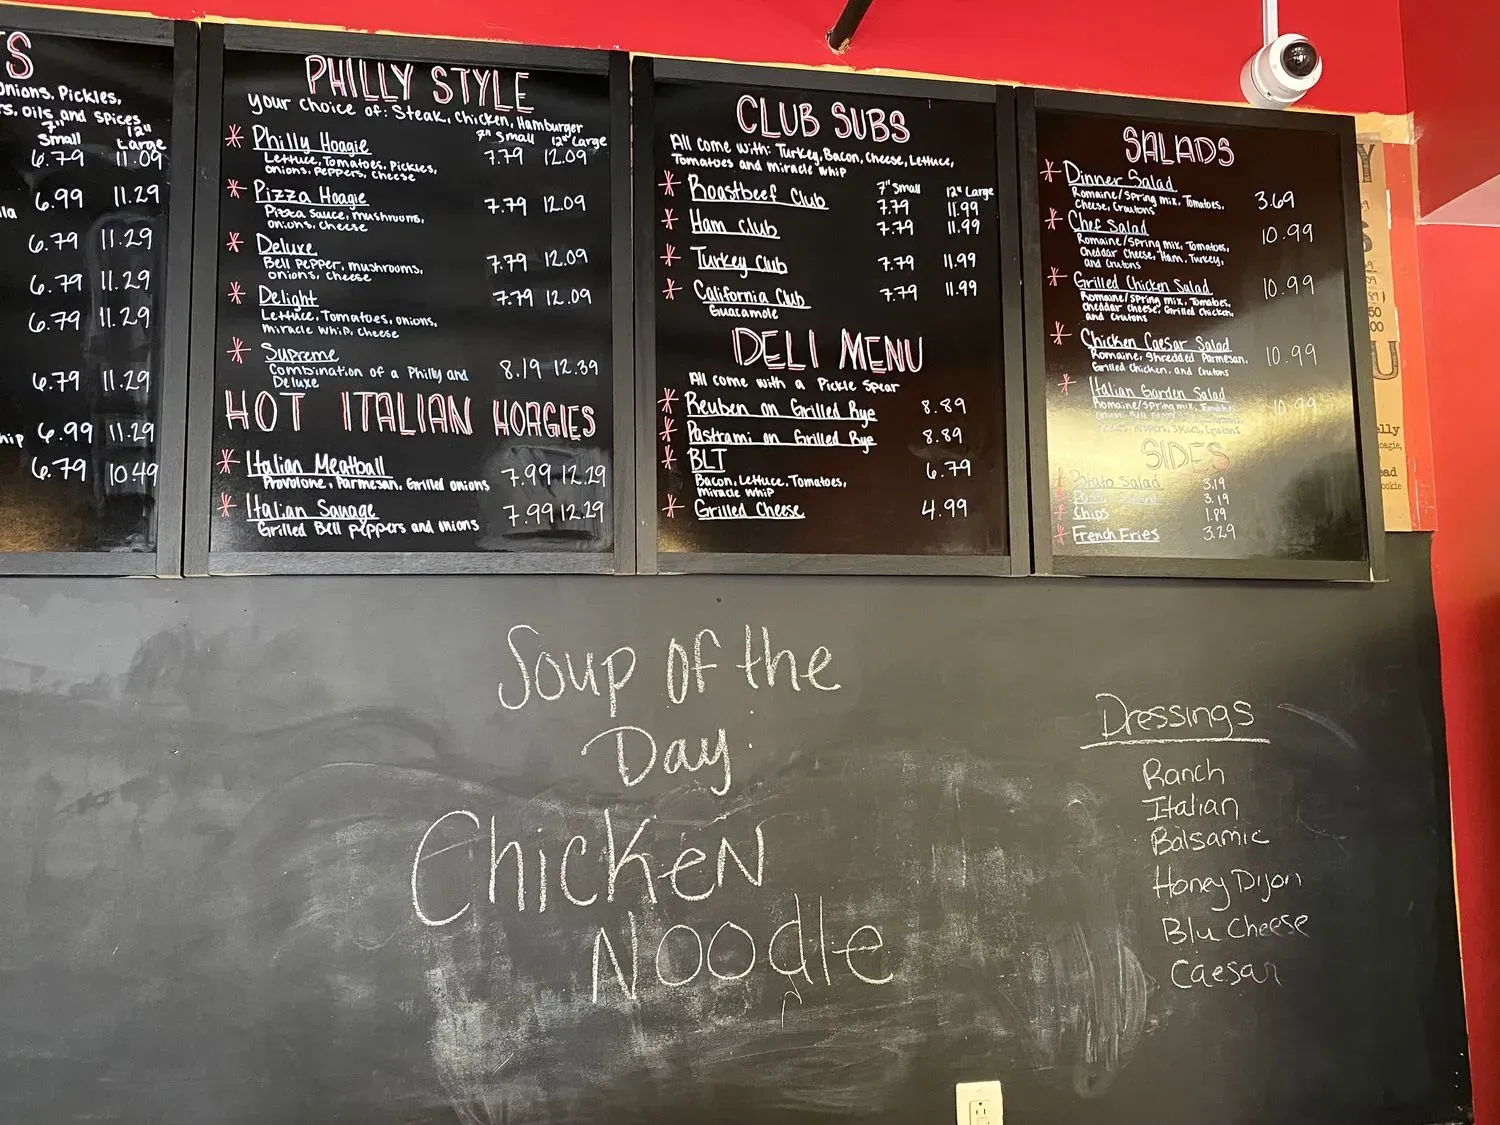 TS
Onions, Pickles,
s, Oils and spices
7" Small 12" Large
6.79 11.09
6.99 11.29
6.79 11.29
6.79 11.29
6.79 11.29
6.79 11.29
hip 6.99 11.29
6.79 10.49
PHILLY STYLE
your choice of: Steak, Chicken, Hamburger
7" Small 12" Large
Philly Hoagie 7.79 12.09
Lettuce, Tomatoes, Pickles,
onions, Peppers, Cheese
Pizza Hoagie 7.79 12.09
Pizza Sauce, mushrooms,
onions, cheese
Deluxe 7.79 12.09
Bell Pepper, mushrooms,
onions, cheese
Delight 7.79 12.09
Lettuce, Tomatoes, onions,
miracle whip, cheese
Supreme 8.19 12.39
Combination of a Philly and
Deluxe
HOT ITALIAN HOAGIES
Italian Meatball 7.99 12.29
Provolone, Parmesan, Grilled onions
Italian Sausage 7.99 12.29
Grilled Bell peppers and onions
CLUB SUBS
All come with: Turkey, Bacon, Cheese, Lettuce,
Tomatoes and miracle whip
7" Small 12" Large
Roastbeef Club 7.79 11.99
Ham Club 7.79 11.99
Turkey Club 7.79 11.99
California Club 7.79 11.99
Guacamole
DELI MENU
All come with a Pickle Spear
Reuben on Grilled Rye 8.89
Pastrami on Grilled Rye 8.89
BLT 6.79
Bacon, Lettuce, Tomatoes,
miracle whip
Grilled Cheese 4.99
SALADS
Dinner Salad 3.69
Romaine/Spring mix, Tomatoes,
Cheese, Croutons
Chef Salad 10.99
Romaine/Spring mix, Tomatoes,
cheddar cheese, Ham, Turkey,
and Crutons
Grilled Chicken Salad 10.99
Romaine/Spring mix, Tomatoes,
cheddar cheese, Grilled Chicken,
and Crutons
Chicken Caesar Salad 10.99
Romaine, Shredded Parmesan,
Grilled Chicken, and Crutons
Italian Garden Salad 10.99
Romaine/Spring mix,
SIDES
Potato Salad 3.19
3.19
Chips 1.89
French Fries 3.29
Soup of the
Day:
Chicken
Noodle
Dressings
Ranch
Italian
Balsamic
Honey Dijon
Blu Cheese
Caesar